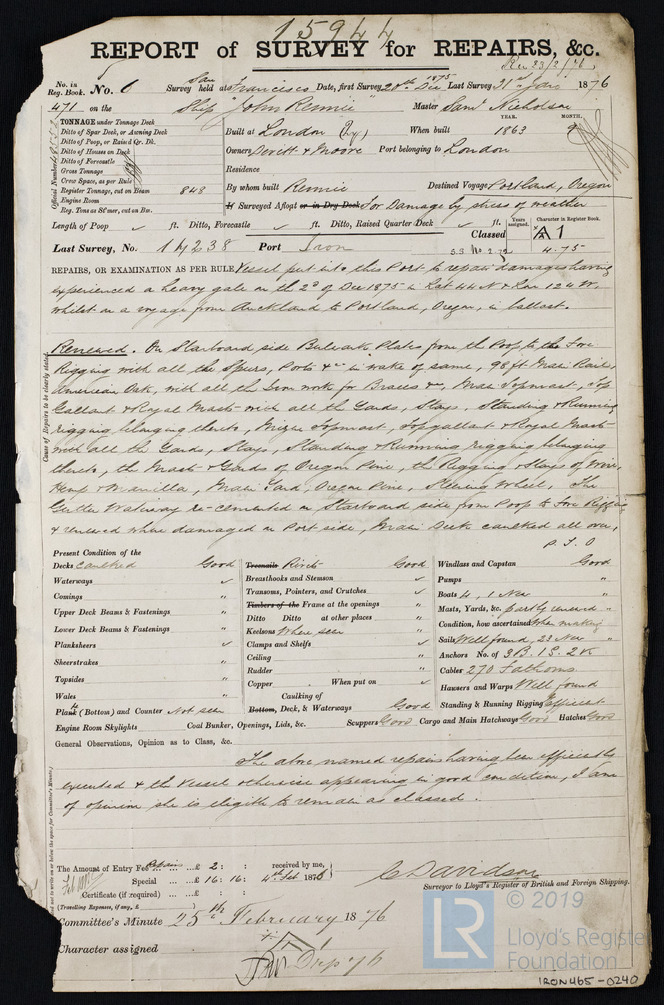 15944
REPORT of SURVEY for REPAIRS, &c.
Rec 23/2/76
No. in Reg. Book. No. 6 Survey held at San Francisco Date, first Survey 20th Dec 1875 Last Survey 31st Jan 1876
471 on the Ship "John Rennie" Master Saml Nicholson
TONNAGE under Tonnage Deck
Ditto of Spar Deck, or Awning Deck
Ditto of Poop, or Raised Qr. Dk.
Ditto of Houses on Deck
Ditto of Forecastle
Gross Tonnage
Crew Space, as per Rule
Register Tonnage, cut on Beam 848
Engine Room
Reg. Tons as St'mer, cut on Bm.
Official Number
YEAR. MONTH.
Built at London When built 1863 9
Owners Devitt & Moore Port belonging to London
Residence
By whom built Rennie Destined Voyage Portland, Oregon
If Surveyed Afloat or in Dry Dock for Damage by stress of weather
Length of Poop ft. Ditto, Forecastle ft. Ditto, Raised Quarter Deck ft. Classed Years assigned. Character in Register Book. A1
Last Survey, No. 14238 Port Iron 4.75
REPAIRS, OR EXAMINATION AS PER RULE Vessel put into this Port to repair damages having
experienced a heavy gale on the 2d of Dec 1875 in Lat 44 N & Lon 124 W.
whilst on a voyage from Auckland to Portland, Oregon, in ballast.
Cause of Repairs to be clearly stated.
Renewed. On Starboard side Bulwark Plates from the Poop to the Fore
Rigging with all the Spurs, Ports &c in wake of same, 98 ft Main Rail,
American Oak, with all the Iron work for Braces &c, Main Topmast, Top
Gallant & Royal Mast with all the Yards, Stays, Standing & Running
rigging belonging thereto, Mizen Topmast, Topgallant & Royal Mast
with all the Yards, Stays, Standing & Running rigging belonging
thereto, the Masts & Yards of Oregon Pine, the Rigging & Stays of Wire,
Hemp & Manilla, Main Yard, Oregon Pine, Steering Wheel, The
Gutter Waterway re-cemented on Starboard side from Poop to Fore Rigging
& renewed where damaged on Port side, Main Deck caulked all over,
P. T. O
Present Condition of the
Decks Caulked Good
Waterways
Comings "
Upper Deck Beams & Fastenings "
Lower Deck Beams & Fastenings "
Planksheers
Sheerstrakes "
Topsides "
Wales "
Plank (Bottom) and Counter Not seen
Engine Room Skylights Coal Bunker, Openings, Lids, &c.
Treenails Rivets Good
Breasthooks and Stemson
Transoms, Pointers, and Crutches
Timbers of the Frame at the openings "
Ditto Ditto at other places "
Keelsons Where seen "
Clamps and Shelfs
Ceiling "
Rudder "
Copper When put on
Caulking of
Bottom, Deck, & Waterways Good
Scuppers Good Cargo and Main Hatchways Good Hatches Good
Windlass and Capstan Good
Pumps "
Boats 4, 1 New "
Masts, Yards, &c. partly renewed "
Condition, how ascertained When making
Sails Well found, 23 New "
Anchors No. of 3 B. 1 S. 2 K
Cables 270 Fathoms
Hawsers and Warps Well found
Standing & Running Rigging Efficient
General Observations, Opinion as to Class, &c.
The above named repairs having been efficiently
executed & the Vessel otherwise appearing in good condition, I am
of opinion she is eligible to remain as classed.
The Amount of Entry Fee Repairs £ 2 : : received by me,
Special £ 16 : 16 : 4th Feb 1876
Certificate (if required) £ : :
(Travelling Expenses, if any, £
C Davidson
Surveyor to Lloyd's Register of British and Foreign Shipping.
Committee's Minute 25th February 1876
Character assigned
© 2019
LR
Lloyd's Register
Foundation
IRON465-0240